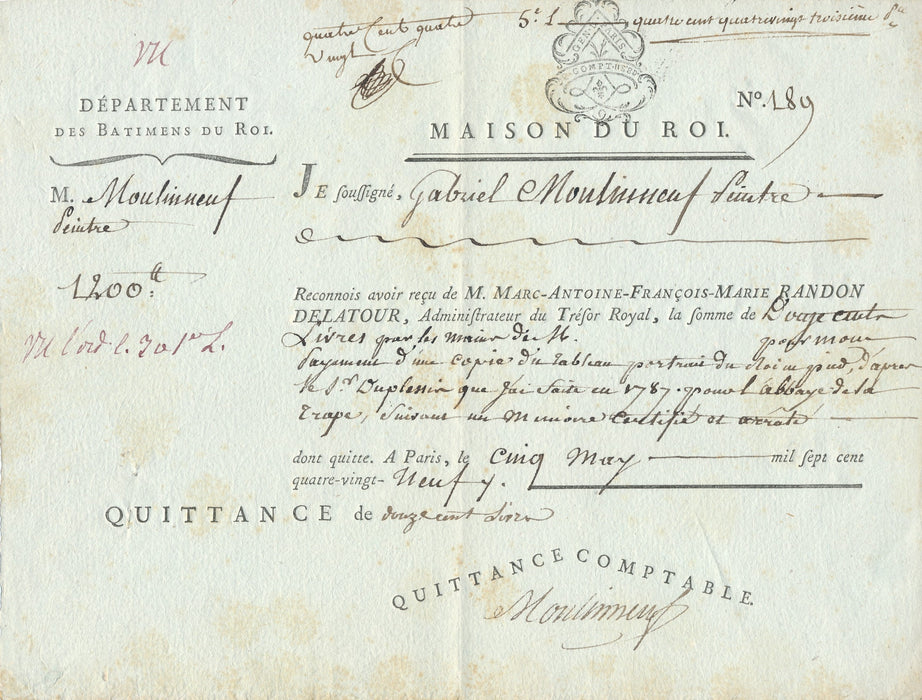 quatre Cent quatre
vingt
5.e L
quatre cent quatrevingt troisième
GEN. PARIS
COMPT.
Vu
DÉPARTEMENT
DES BATIMENS DU ROI.
N.º 189
MAISON DU ROI.
M. Moulinneuf
Peintre
1200.tt
Vu l'ord.
JE soussigné, Gabriel Moulinneuf Peintre
Reconnois avoir reçu de M. MARC-ANTOINE-FRANÇOIS-MARIE RANDON
DELATOUR, Administrateur du Trésor Royal, la somme de Douze cents
Livres par les mains de M. pour mon
Payement d'une copie du tableau portrait du Roi en pied, d'apres
le S.r Duplessis que j'ai faite en 1787. pour l'abbaye de la
Trape, suivant un Mémoire certifié et arrêté
dont quitte. A Paris, le Cinq May mil sept cent
quatre-vingt-Neuf
QUITTANCE de douze cent Livres
QUITTANCE COMPTABLE.
Moulinneuf